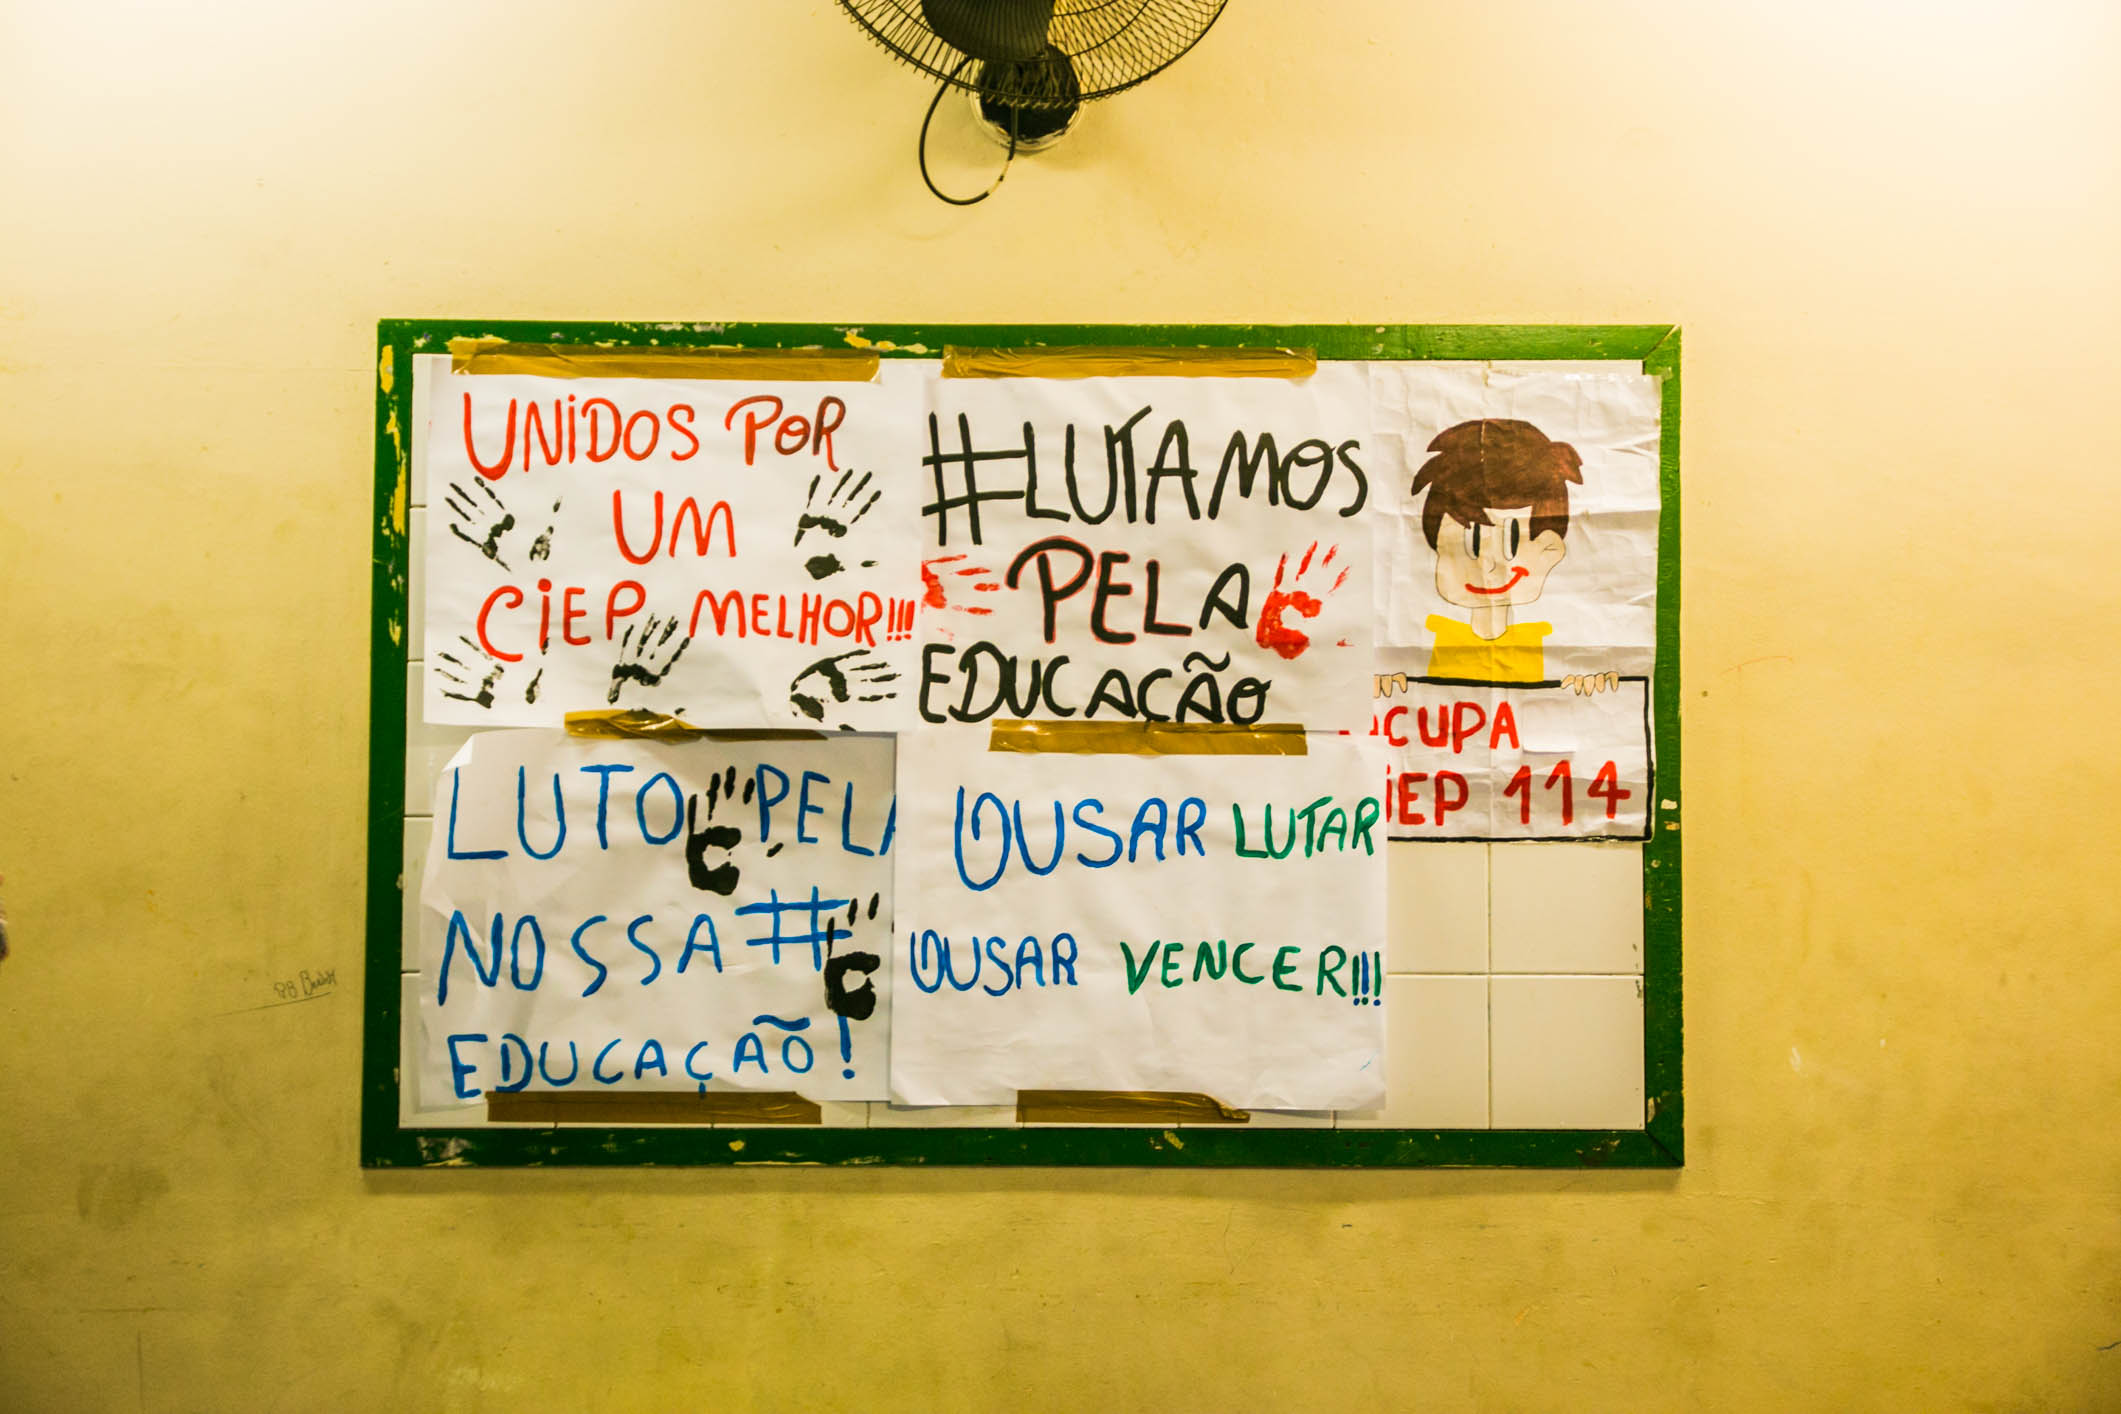 UNiDOS POR
UM
CiEP MELHOR!!!
#LUTAMOS
PELA
EDUCAÇÃO
OCUPA
CiEP 114
LUTO PELA
NOSSA #
EDUCAÇÃO!
OUSAR LUTAR
OUSAR VENCER!!!